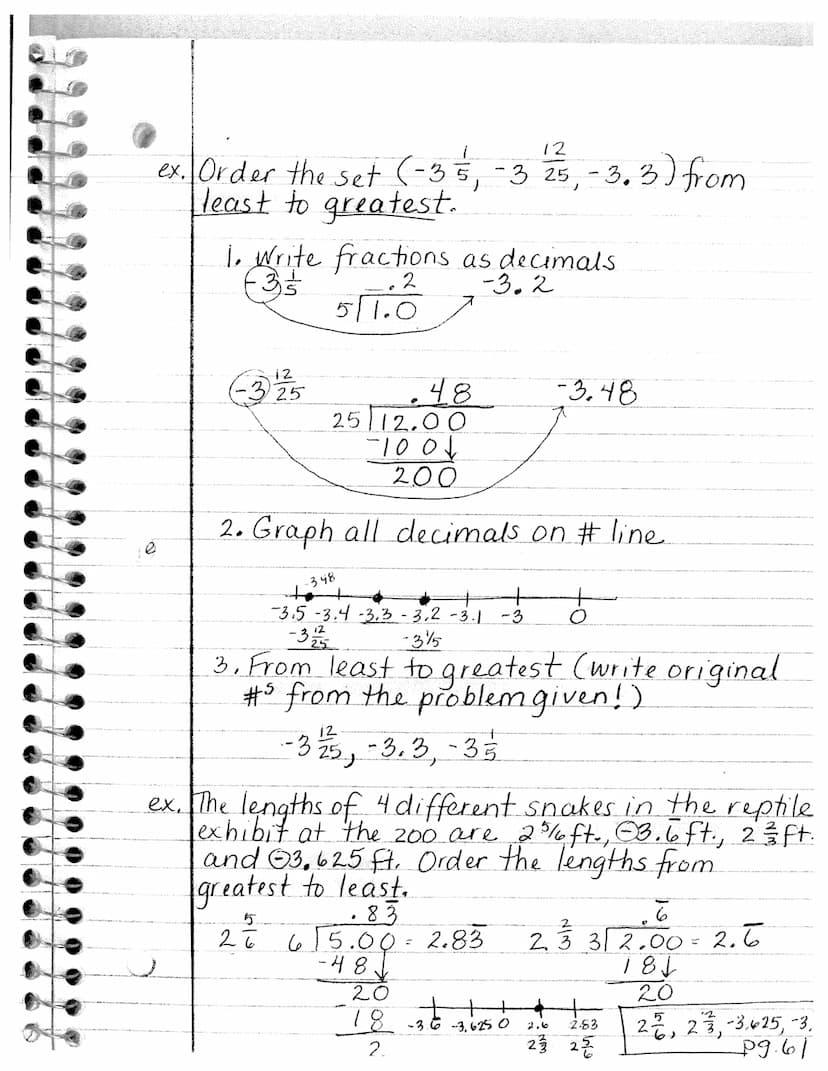 ex. Order the set (-3 1/5, -3 12/25, -3.3) from
least to greatest.
1. Write fractions as decimals
-3 1/5 .2 -3.2
5 1.0
-3 12/25 .48 -3.48
25 12.00
-10 0↓
200
2. Graph all decimals on # line
e
-3.48
-3.5 -3.4 -3.3 -3.2 -3.1 -3 0
-3 12/25 -3 1/5
3. From least to greatest (write original
#s from the problem given!)
-3 12/25, -3.3, -3 1/5
ex. The lengths of 4 different snakes in the reptile
exhibit at the zoo are 2 5/6 ft., -3.6̅ ft., 2 2/3 ft.
and -3.625 ft. Order the lengths from
greatest to least.
.83̅ .6̅
2 5/6 6 5.00 = 2.83̅ 2 2/3 3 2.00 = 2.6̅
-48↓ 18↓
20 20
18 -3.6 -3.625 0 2.6 2.83 2 5/6, 2 2/3, -3.625, -3.
2 2 2/3 2 5/6 pg. 61